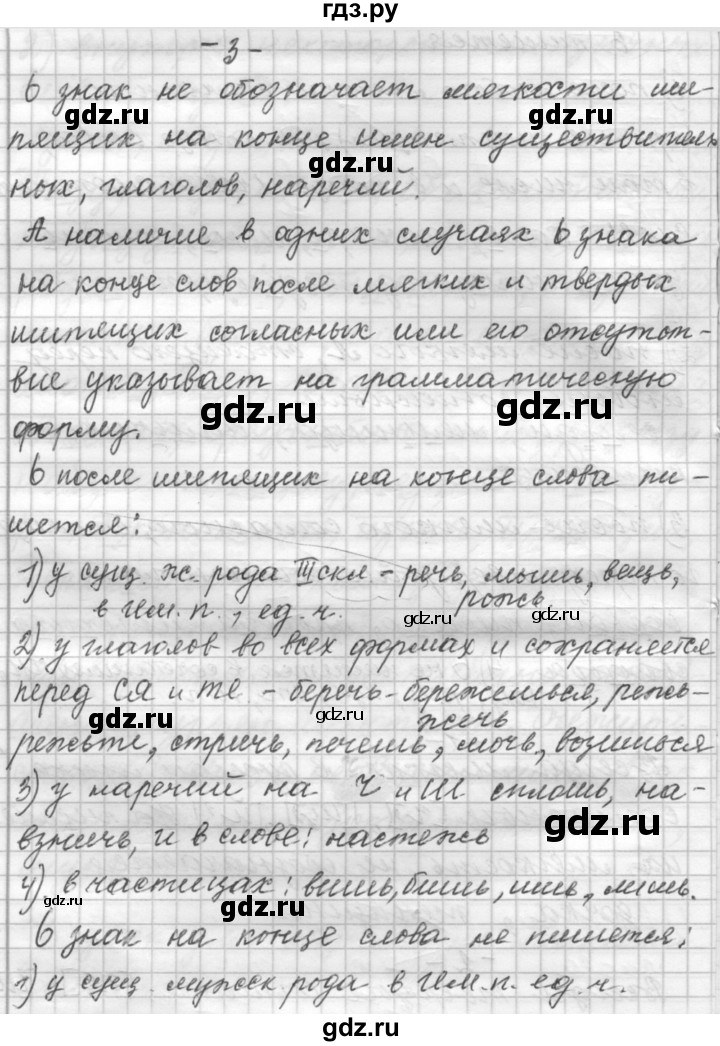 гдз.ру
- 3 -
ь знак не обозначает мягкости ши-
пящих на конце имен существитель-
ных, глаголов, наречий.
А наличие в одних случаях ь знака
на конце слов после мягких и твердых
шипящих согласных или его отсутст-
вие указывает на грамматическую
форму.
ь после шипящих на конце слова пи-
шется:
1) у сущ. ж. рода III скл - речь, мышь, вещь,
рожь
в Им. п., ед. ч.
2) у глаголов во всех формах и сохраняется
перед ся и те - беречь - бережешься, режь-
жечь
режьте, стричь, печешь, мочь, возишься
3) у наречий на Ч и Ш сплошь, на-
взничь, и в слове: настежь
4) в частицах: вишь, бишь, ишь, лишь.
ь знак на конце слова не пишется:
1) у сущ. мужск рода в Им. п. ед. ч.
gdz.ru
gdz.ru
gdz.ru
gdz.ru
gdz.ru
gdz.ru
gdz.ru
gdz.ru
gdz.ru
gdz.ru
gdz.ru
gdz.ru
gdz.ru
gdz.ru